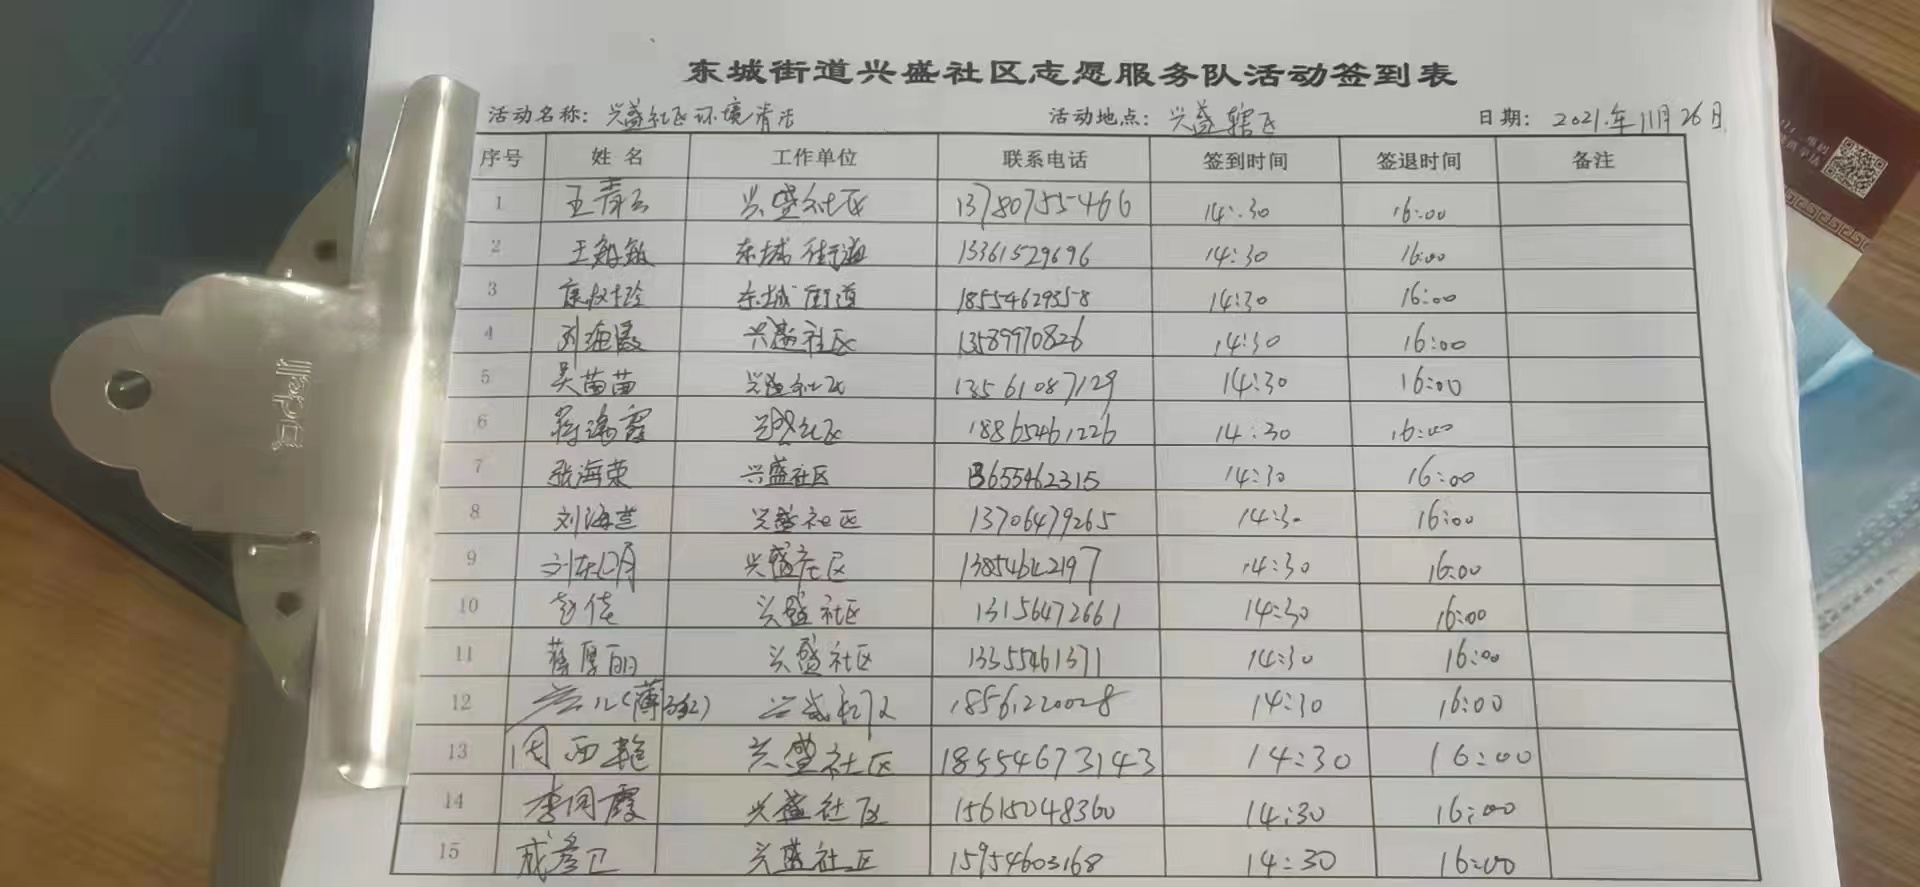 东城街道兴盛社区志愿服务队活动签到表
活动名称: 兴盛社区环境清洁 活动地点: 兴盛辖区 日期: 2021年11月26日
序号 姓名 工作单位 联系电话 签到时间 签退时间 备注
1 王青云 兴盛社区 13780755466 14:30 16:00
2 东城街道 13361529696 14:30 16:00
3 东城街道 18554629358 14:30 16:00
4 刘海霞 兴盛社区 13589970826 14:30 16:00
5 吴苗苗 兴盛社区 13561087129 14:30 16:00
6 兴盛社区 18865461226 14:30 16:00
7 张海荣 兴盛社区 13655462315 14:30 16:00
8 刘海兰 兴盛社区 13706479265 14:30 16:00
9 刘东明 兴盛社区 13854642197 14:30 16:00
10 赵倩 兴盛社区 13156472661 14:30 16:00
11 薛厚丽 兴盛社区 13355461371 14:30 16:00
12 兴盛社区 18561220028 14:30 16:00
13 周西艳 兴盛社区 18554673143 14:30 16:00
14 李同霞 兴盛社区 15615048360 14:30 16:00
15 成彦卫 兴盛社区 15954603168 14:30 16:00